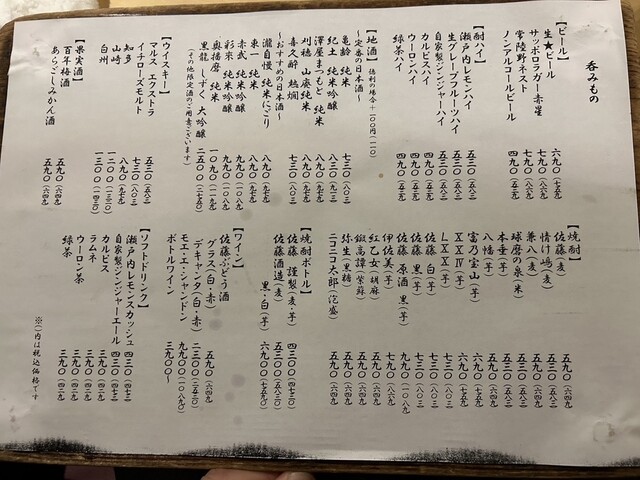 呑みもの
【ビール】
生★ビール 六九〇(七五九)
サッポロラガー赤星 七九〇(八六九)
常陸野ネスト 七九〇(八六九)
ノンアルコールビール 四九〇(五三九)
【酎ハイ】
瀬戸内レモンハイ 五三〇(五八三)
生グレープフルーツハイ 五三〇(五八三)
自家製ジンジャーハイ 五三〇(五八三)
カルピスハイ 四九〇(五三九)
ウーロンハイ 四九〇(五三九)
緑茶ハイ 四九〇(五三九)
【地酒】 徳利の場合+一〇〇円(一一〇)
〜定番の日本酒〜
亀齢 純米 七三〇(八〇三)
紀土 純米吟醸 八三〇(九一三)
澤屋まつもと 純米
刈穂 山廃純米
喜久酔 特別 七三〇(八〇三)
〜おすすめの日本酒〜
瀧自慢 純米にごり 八九〇(九七九)
東一 純米 八九〇(九七九)
赤武 純米吟醸 九九〇(一〇八九)
彩來 純米吟醸
奥播磨 純米
黒龍 しずく 大吟醸 二五〇〇
(その他限定酒のご用意ございます)
【ウイスキー】
マルス エクストラ 五三〇(五八三)
イチローズモルト 八九〇(九七九)
知多 八九〇(九七九)
山崎 一二〇〇
白州 一三〇〇(一四三〇)
【果実酒】
百年梅酒 五九〇(六四九)
あらごしみかん酒 五九〇(六四九)
【焼酎】
佐藤(麦) 五九〇(六四九)
情け嶋(麦) 五五〇
兼八(麦) 五九〇(六四九)
球磨の泉(米) 五三〇(五八三)
本垂(芋) 五三〇(五八三)
八幡(芋) 五九〇(六四九)
富乃宝山(芋) 五九〇(六四九)
佐藤 白(芋)
佐藤 黒(芋) 七三〇(八〇三)
佐藤 原酒 黒(芋) 九九〇(一〇八九)
伊佐美(芋)
紅乙女(胡麻) 五九〇(六四九)
鍛高譚(紫蘇) 五九〇(六四九)
弥生(黒糖) 五九〇(六四九)
ニコニコ太郎(泡盛) 五九〇(六四九)
【焼酎ボトル】
佐藤 謹製(麦・芋) 四三〇〇(四七三〇)
佐藤酒造(麦)
黒・白(芋) 六九〇〇(七五九〇)
【ワイン】
佐藤ぶどう酒
グラス(白・赤) 五九〇(六四九)
デキャンタ(白・赤) 二三〇〇
モエ・エ・シャンドン 九九〇〇
ボトルワイン 三九〇〇〜
【ソフトドリンク】
瀬戸内レモンスカッシュ 四三〇(四七三)
自家製ジンジャーエール 四三〇(四七三)
カルピス 三九〇(四二九)
ラムネ 三九〇(四二九)
ウーロン茶 三九〇(四二九)
緑茶 三九〇(四二九)
※()内は税込価格です